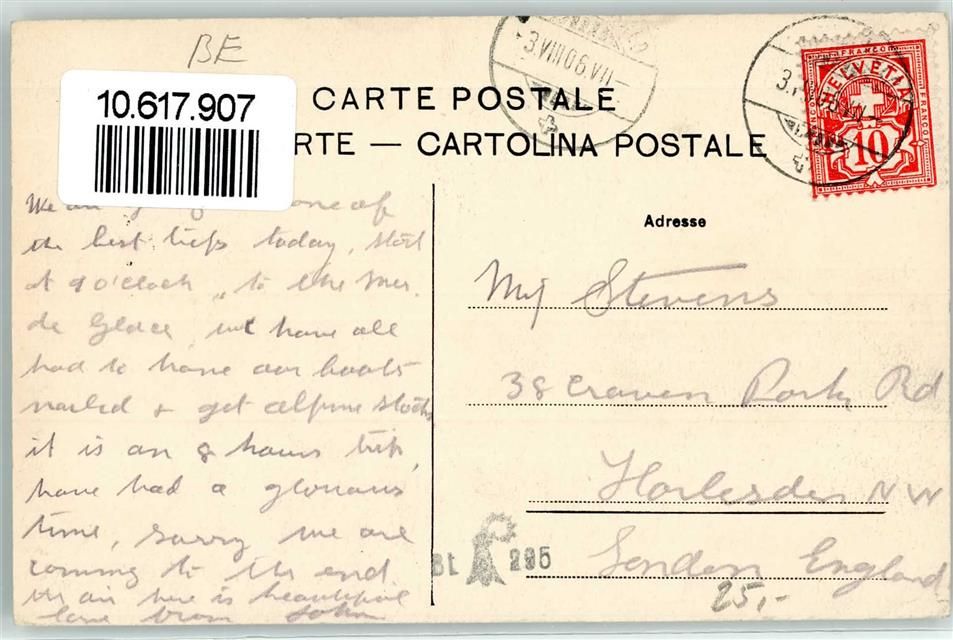 BE
10.617.907
CARTE POSTALE
RTE — CARTOLINA POSTALE
3.VIII.06.VII–
3.VIII.06.VII–
FRANCO
HELVETIA
FRANCO
FRANCO
10
Adresse
We are going one of
the best trips today, start
at 9 o'clock, to the Mer.
de Glace, we have all
had to have our boots
nailed + get alpine stocks
it is an 8 hours trip,
have had a glorious
time, sorry we are
coming to the end.
the air here is beautiful
love from John
Miss Stevens
38 Craven Park Rd
Harlesden NW
London England
Bt 295
25,-